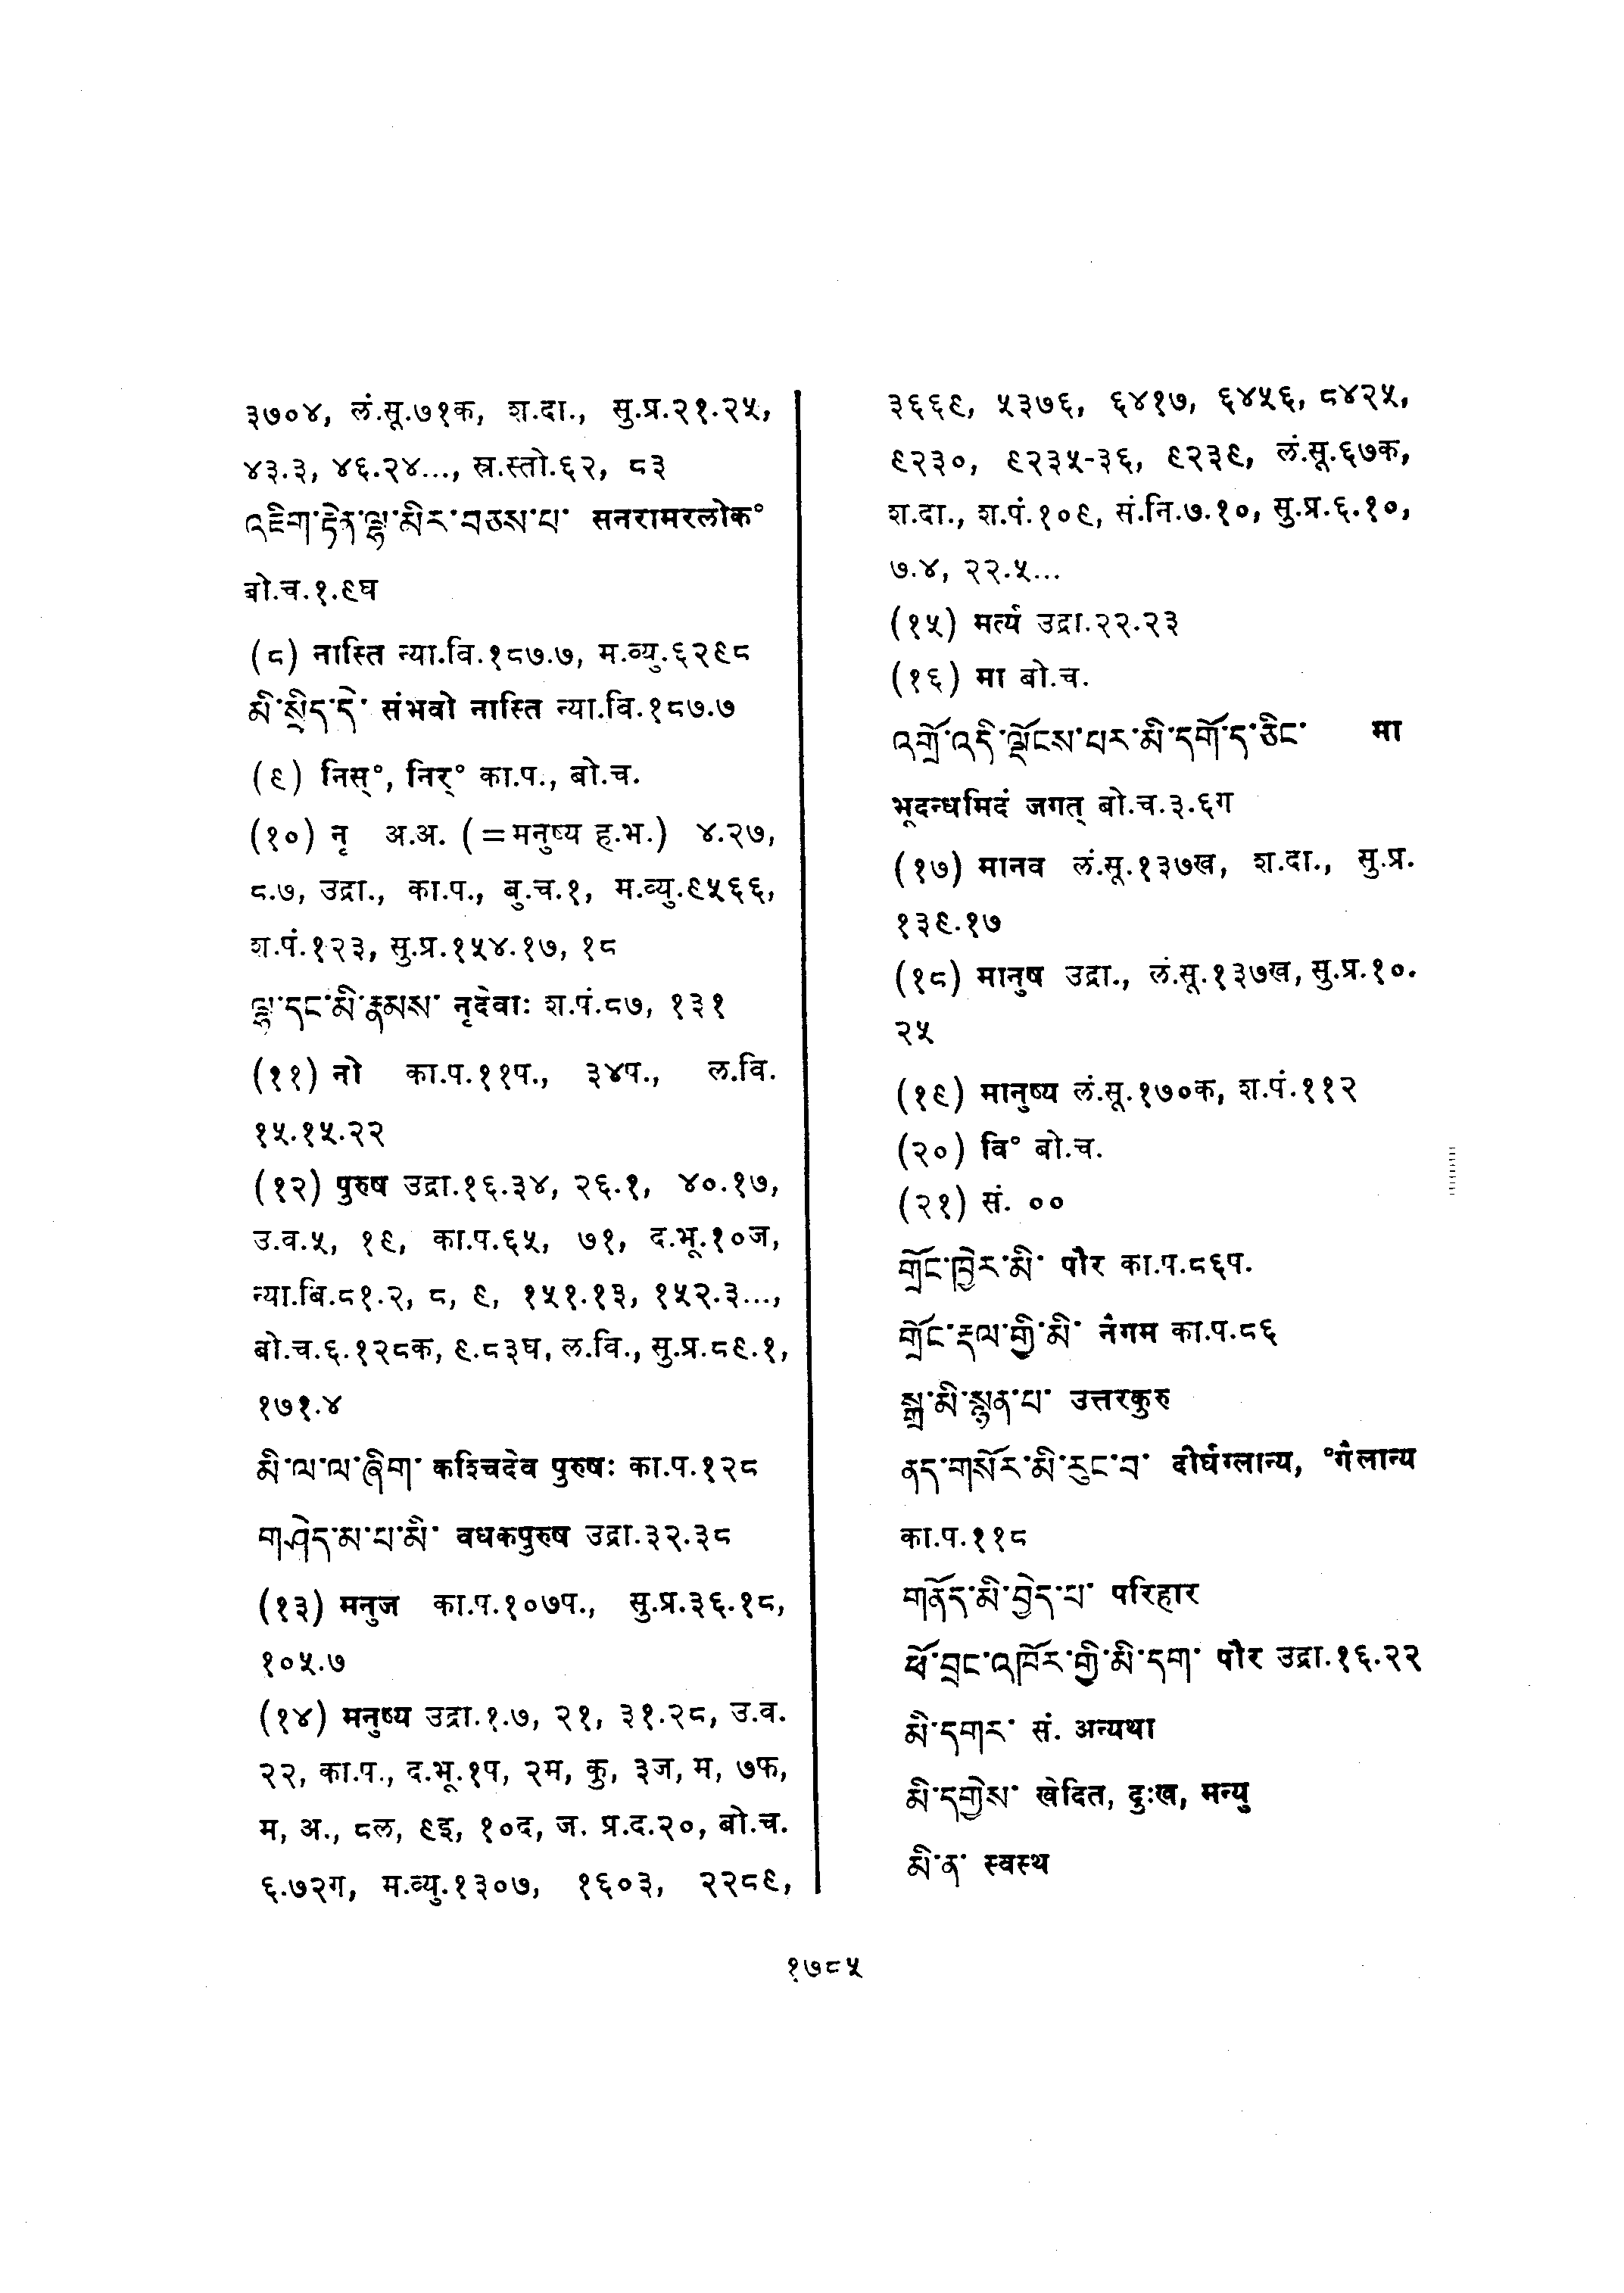 ३७०४, लं.सू.७१क, श.दा., सु.प्र.२१.२५,
४३.३, ४६.२४..., स्र.स्तो.६२, ८३
འཇིག་རྟེན་ལྷ་མིར་བཅས་པ་ सनरामरलोक°
बो.च.१.९घ
(८) नास्ति न्या.वि.१८७.७, म.व्यु.६२९८
མི་སྲིད་དེ་ संभवो नास्ति न्या.वि.१८७.७
(९) निस्°, निर्° का.प., बो.च.
(१०) नृ अ.अ. (=मनुष्य ह.भ.) ४.२७,
८.७, उद्रा., का.प., बु.च.१, म.व्यु.९५६६,
श.पं.१२३, सु.प्र.१५४.१७, १८
ལྷ་དང་མི་རྣམས་ नृदेवाः श.पं.८७, १३१
(११) नो का.प.११प., ३४प., ल.वि.
१५.१५.२२
(१२) पुरुष उद्रा.१६.३४, २६.१, ४०.१७,
उ.व.५, १९, का.प.६५, ७१, द.भू.१०ज,
न्या.बि.८१.२, ८, ९, १५१.१३, १५२.३...,
बो.च.६.१२८क, ९.८३घ, ल.वि., सु.प्र.८९.१,
१७१.४
མི་ལ་ལ་ཞིག་ कश्चिदेव पुरुषः का.प.१२८
གཤེད་མ་པ་མི་ वधकपुरुष उद्रा.३२.३८
(१३) मनुज का.प.१०७प., सु.प्र.३६.१८,
१०५.७
(१४) मनुष्य उद्रा.१.७, २१, ३१.२८, उ.व.
२२, का.प., द.भू.१प, २म, कु, ३ज, म, ७फ,
म, अ., ८ल, ९इ, १०द, ज. प्र.द.२०, बो.च.
६.७२ग, म.व्यु.१३०७, १६०३, २२८९,
३६६९, ५३७६, ६४१७, ६४५६, ८४२५,
९२३०, ९२३५-३६, ९२३९, लं.सू.६७क,
श.दा., श.पं.१०९, सं.नि.७.१०, सु.प्र.६.१०,
७.४, २२.५...
(१५) मर्त्य उद्रा.२२.२३
(१६) मा बो.च.
འགྲོ་འདི་ལྡོངས་པར་མི་དགོད་ཅིང་ मा
भूदन्धमिदं जगत् बो.च.३.६ग
(१७) मानव लं.सू.१३७ख, श.दा., सु.प्र.
१३९.१७
(१८) मानुष उद्रा., लं.सू.१३७ख, सु.प्र.१०.
२५
(१९) मानुष्य लं.सू.१७०क, श.पं.११२
(२०) वि° बो.च.
(२१) सं. ००
གྲོང་ཁྱེར་མི་ पौर का.प.८६प.
གྲོང་རྡལ་གྱི་མི་ नैगम का.प.८६
སྒྲ་མི་སྙན་པ་ उत्तरकुरु
ནད་གསོར་མི་རུང་བ་ दीर्घग्लान्य, °गैलान्य
का.प.११८
གནོད་མི་བྱེད་པ་ परिहार
ཕོ་བྲང་འཁོར་གྱི་མི་དག་ पौर उद्रा.१६.२२
མི་དགར་ सं. अन्यथा
མི་དགྱེས་ खेदित, दुःख, मन्यु
མི་ན་ स्वस्थ
१७८५